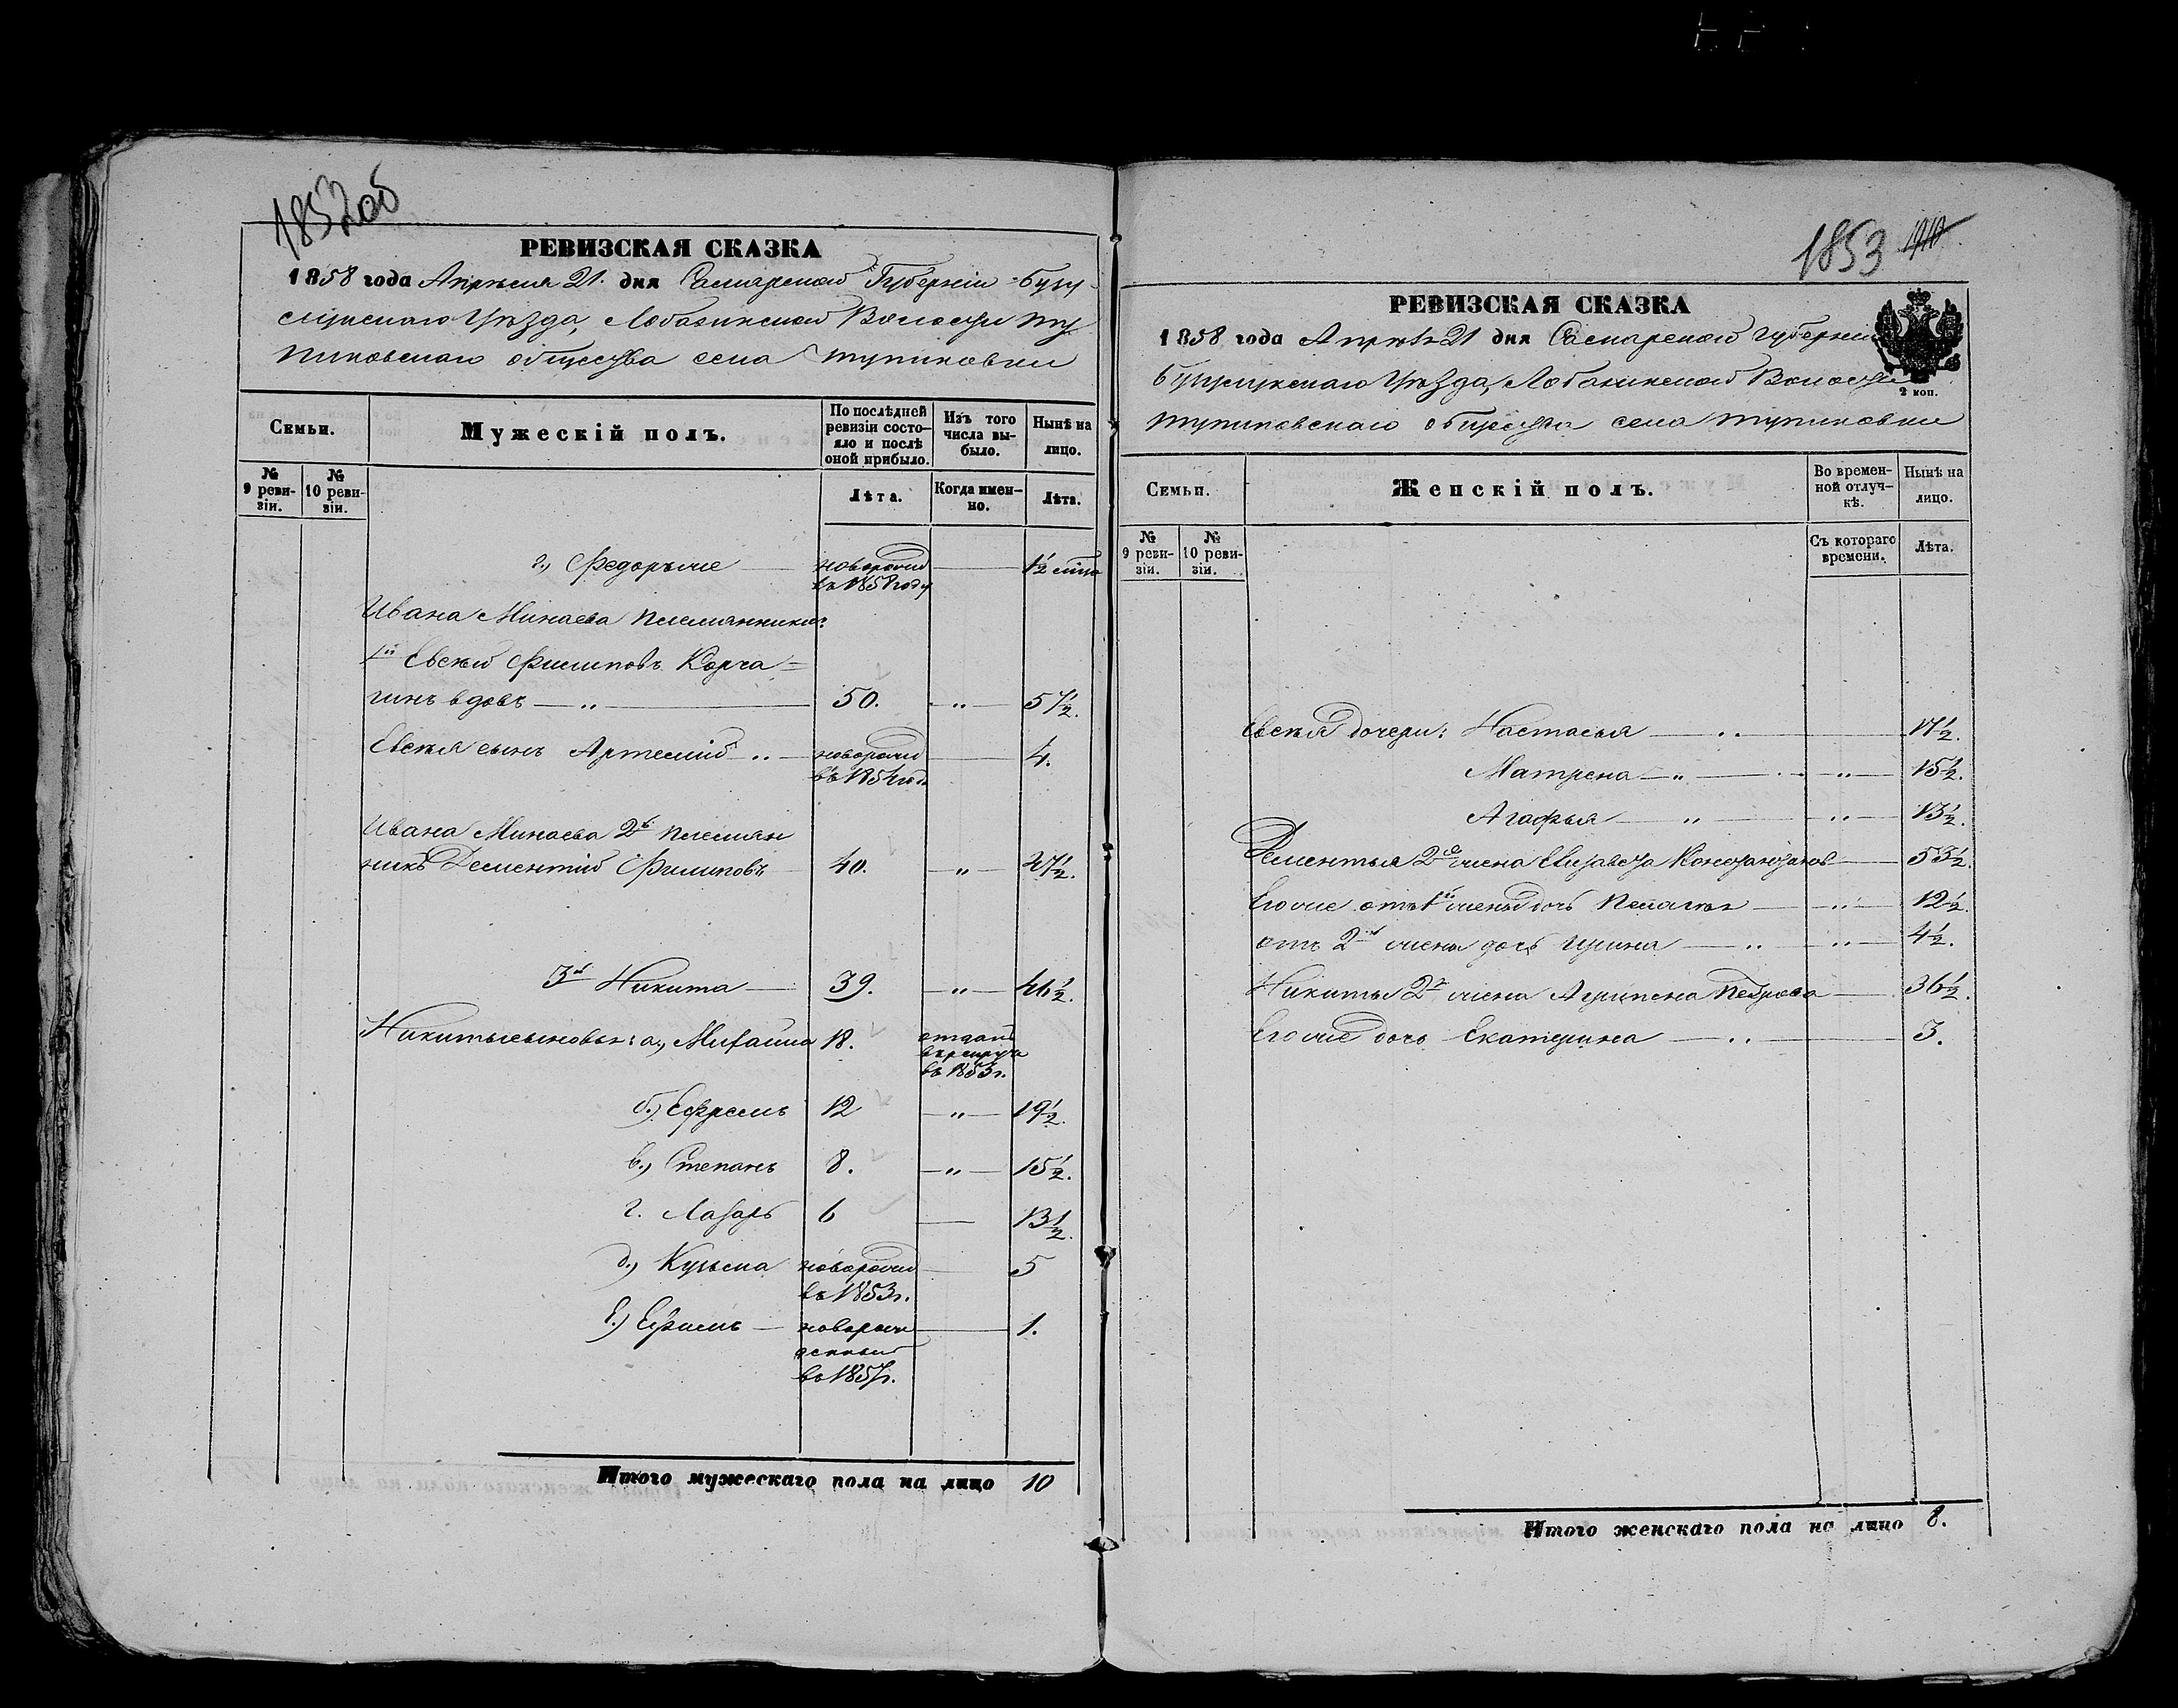 1852об
РЕВИЗСКАЯ СКАЗКА
1858 года Апрѣля 21. дня Самарской Губерніи Бугу-
слускаго Уѣзда, Лобазинской Волости Ту
пиковскаго общества села Тупиковки
Семьи.
Мужескій полъ.
По послѣдней ревизіи состо-яло и послѣ оной прибыло.
Изъ того числа вы-было.
Нынѣ на лицо.
№ 9 реви-зіи.
№ 10 реви-зіи.
Лѣта.
Когда имен-но.
Лѣта.
г., Федоръ же — новорожд — 1/2 года
въ 1857 году
Ивана Минаева племянники:
1й Евсѣй Филиповъ Корча=
гинъ вдовъ — „ — 50. — „ — 57½.
Евсѣя сынъ Артемій „ — новорожд — 4.
въ 1854 год.
Ивана Минаева 2й племян
никъ Дементій Филиповъ 40. — „ — 47½.
3й Никита — 39. — „ — 46½.
Никиты сыновья: а., Михаила 18. отданъ
въ рекруты
въ 1853 г.
б.) Ефремъ 12 — „ — 19½.
в., Степанъ 8. — „ — 15½.
г. Лазарь 6 — 13½.
д., Кузьма новорожд — 5
въ 1853 г.
е.) Ефимъ — новорож — 1.
денный
въ 1857 г.
Итого мужескаго пола на лицо 10
1853 1910
РЕВИЗСКАЯ СКАЗКА
1858 года Апрѣля 21 дня Самарской Губерніи
Бугуслускаго Уѣзда, Лобазинской Волости
2 коп.
Тупиковскаго общества села Тупиковки
Семьи.
Женскій полъ.
Во времен-ной отлуч-кѣ.
Нынѣ на лицо.
№ 9 реви-зіи.
№ 10 реви-зіи.
Съ котораго времени.
Лѣта.
Евсѣя дочери: Настасья — „ — 17½.
Матрена — „ — „ — 15½.
Агафья — „ — „ — 13½.
Дементья 2я жена Елизавета Константинов — 53½.
Его же отъ 1й жены дочь Пелагея — „ — 12½.
отъ 2й жены дочь Ирина — „ — „ — 4½.
Никиты 2я жена Агрипена Петрова — 36½.
Его же дочь Екатерина — „ — 3.
Итого женскаго пола на лицо 8.